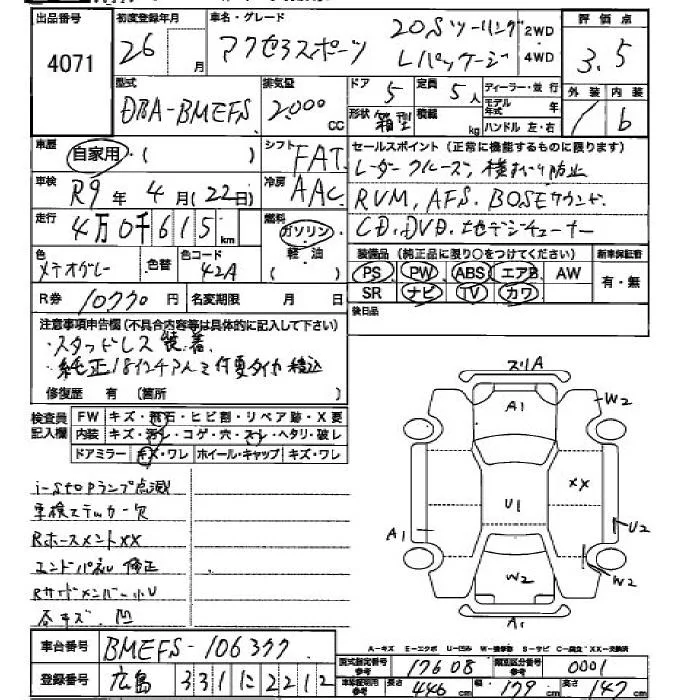 出品番号 4071
初度登録年月 26 月
車名・グレード アクセラスポーツ 20Sツーリング Lパッケージ 2WD 4WD
評価点 3.5
外装 内装 6
型式 DBA-BMEFS
排気量 2000 CC
ドア 5
形状 箱型
定員 5人
積載 kg
ディーラー・並行
モデル年式 年
ハンドル 左・右
車歴 自家用・( )
シフト FAT
セールスポイント (正常に機能するものに限ります)
レーダークルーズ、横すべり防止
RVM, AFS. BOSEサウンド.
CD.DVD.地デジチューナー
車検 R9年 4月(22日)
冷房 AAC
走行 4万0千615km
燃料 ガソリン・軽・油( )
色 メテオグレー
色替
色コード 42A
装備品 (純正品に限り○をつけてください)
PS PW ABS エアB AW
SR ナビ TV カワ
新車保証書 有・無
R券 10770円
名変期限 月 日
後日品
注意事項申告欄(不具合内容等は具体的に記入して下さい)
・スタッドレス装着、
・純正18インチアルミ付夏タイヤ積込
修復歴 有 (箇所 )
検査員記入欄
FW キズ・飛石・ヒビ割・リペア跡・X要
内装 キズ・汚レ・コゲ・穴・スレ・ヘタリ・破レ
ドアミラー キズ・ワレ ホイール・キャップ キズ・ワレ
i-stopランプ点滅
車検ステッカー欠
Rホースメントxx
エンドパネル修正
Rサイドメンバー小U
各キズ、凹
スリA
A1
W2
XX
U1
A1
U2
W2
W2
A1
A-キズ E-エクボ U-凹み W-補修跡 S-サビ C-腐食 XX-交換済
車台番号 BMEFS-106377
登録番号 広島 331 に 2212
型式指定番号 参考 17608
類別区分番号 参考 0001
長さ 446 cm 幅 179 cm 高さ 147 cm